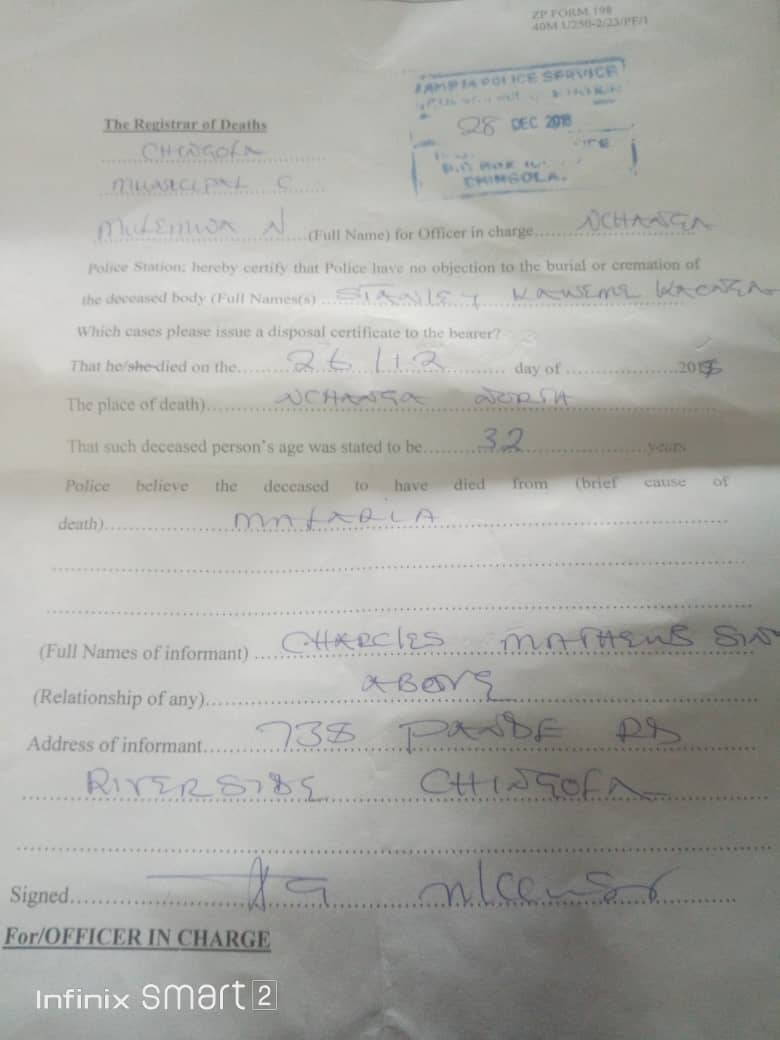 ZP FORM 198
40M U250-2/23/PF/1
ZAMBIA POLICE SERVICE
28 DEC 2018
P.O. BOX
CHINGOLA.
The Registrar of Deaths
CHINGOLA
MUNICIPAL C
MULEMWA N (Full Name) for Officer in charge NCHANGA
Police Station; hereby certify that Police have no objection to the burial or cremation of
the deceased body (Full Names(s) STANLEY KAWEME
Which cases please issue a disposal certificate to the bearer?
That he/she died on the 26/12 day of 2018
The place of death) NCHANGA NORTH
That such deceased person's age was stated to be 32 years
Police believe the deceased to have died from (brief cause of
death) MALARIA
(Full Names of informant) CHARCLES MATHEWS
(Relationship of any) ABOVE
Address of informant 738 PANDE RD
RIVERSIDE CHINGOLA
Signed
For/OFFICER IN CHARGE
Infinix Smart 2